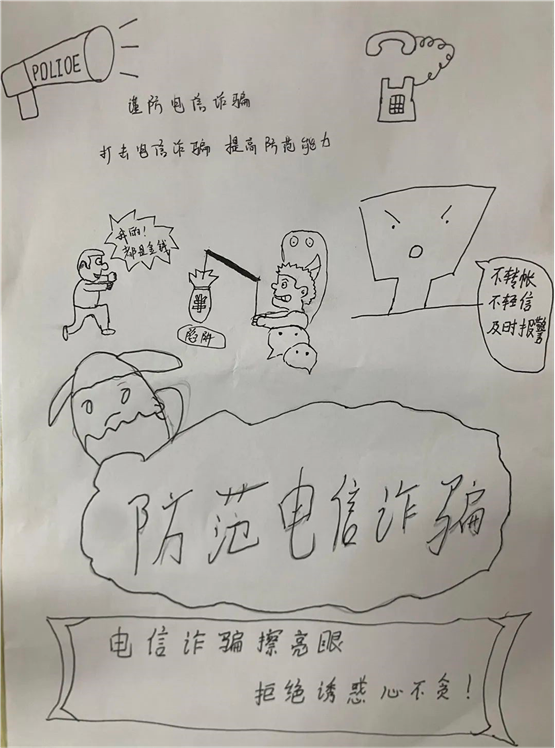 POLIOE
谨防电信诈骗
打击电信诈骗 提高防范能力
我的!
都是金钱
陷阱
不转帐
不轻信
及时报警
防范电信诈骗
电信诈骗擦亮眼
拒绝诱惑心不贪!